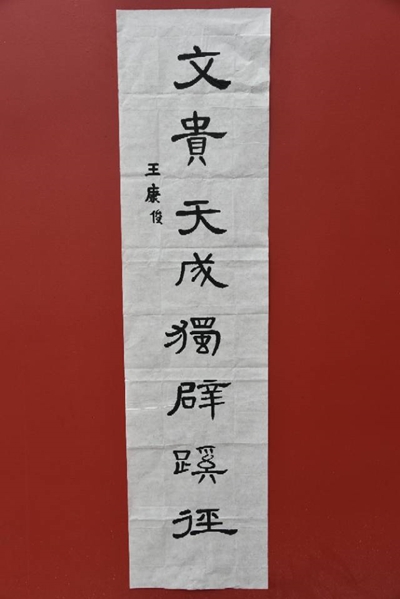 文貴天成獨辟蹊徑
王康俊